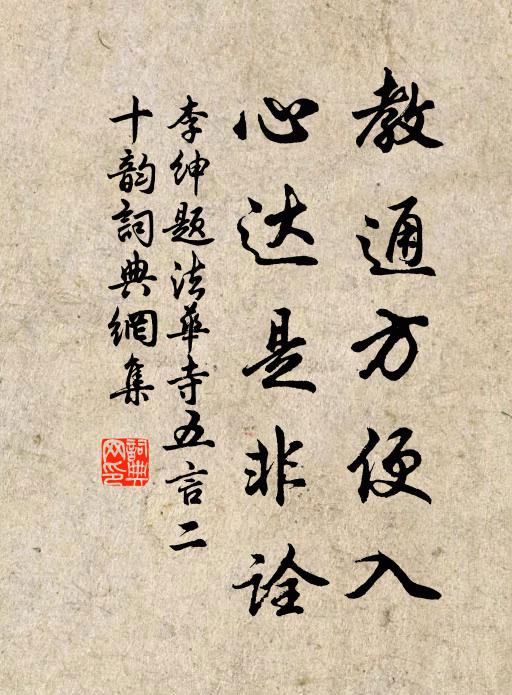 教通方便入
心达是非诠
李绅题法華寺五言二
十韵詞典網集
詞典
网印